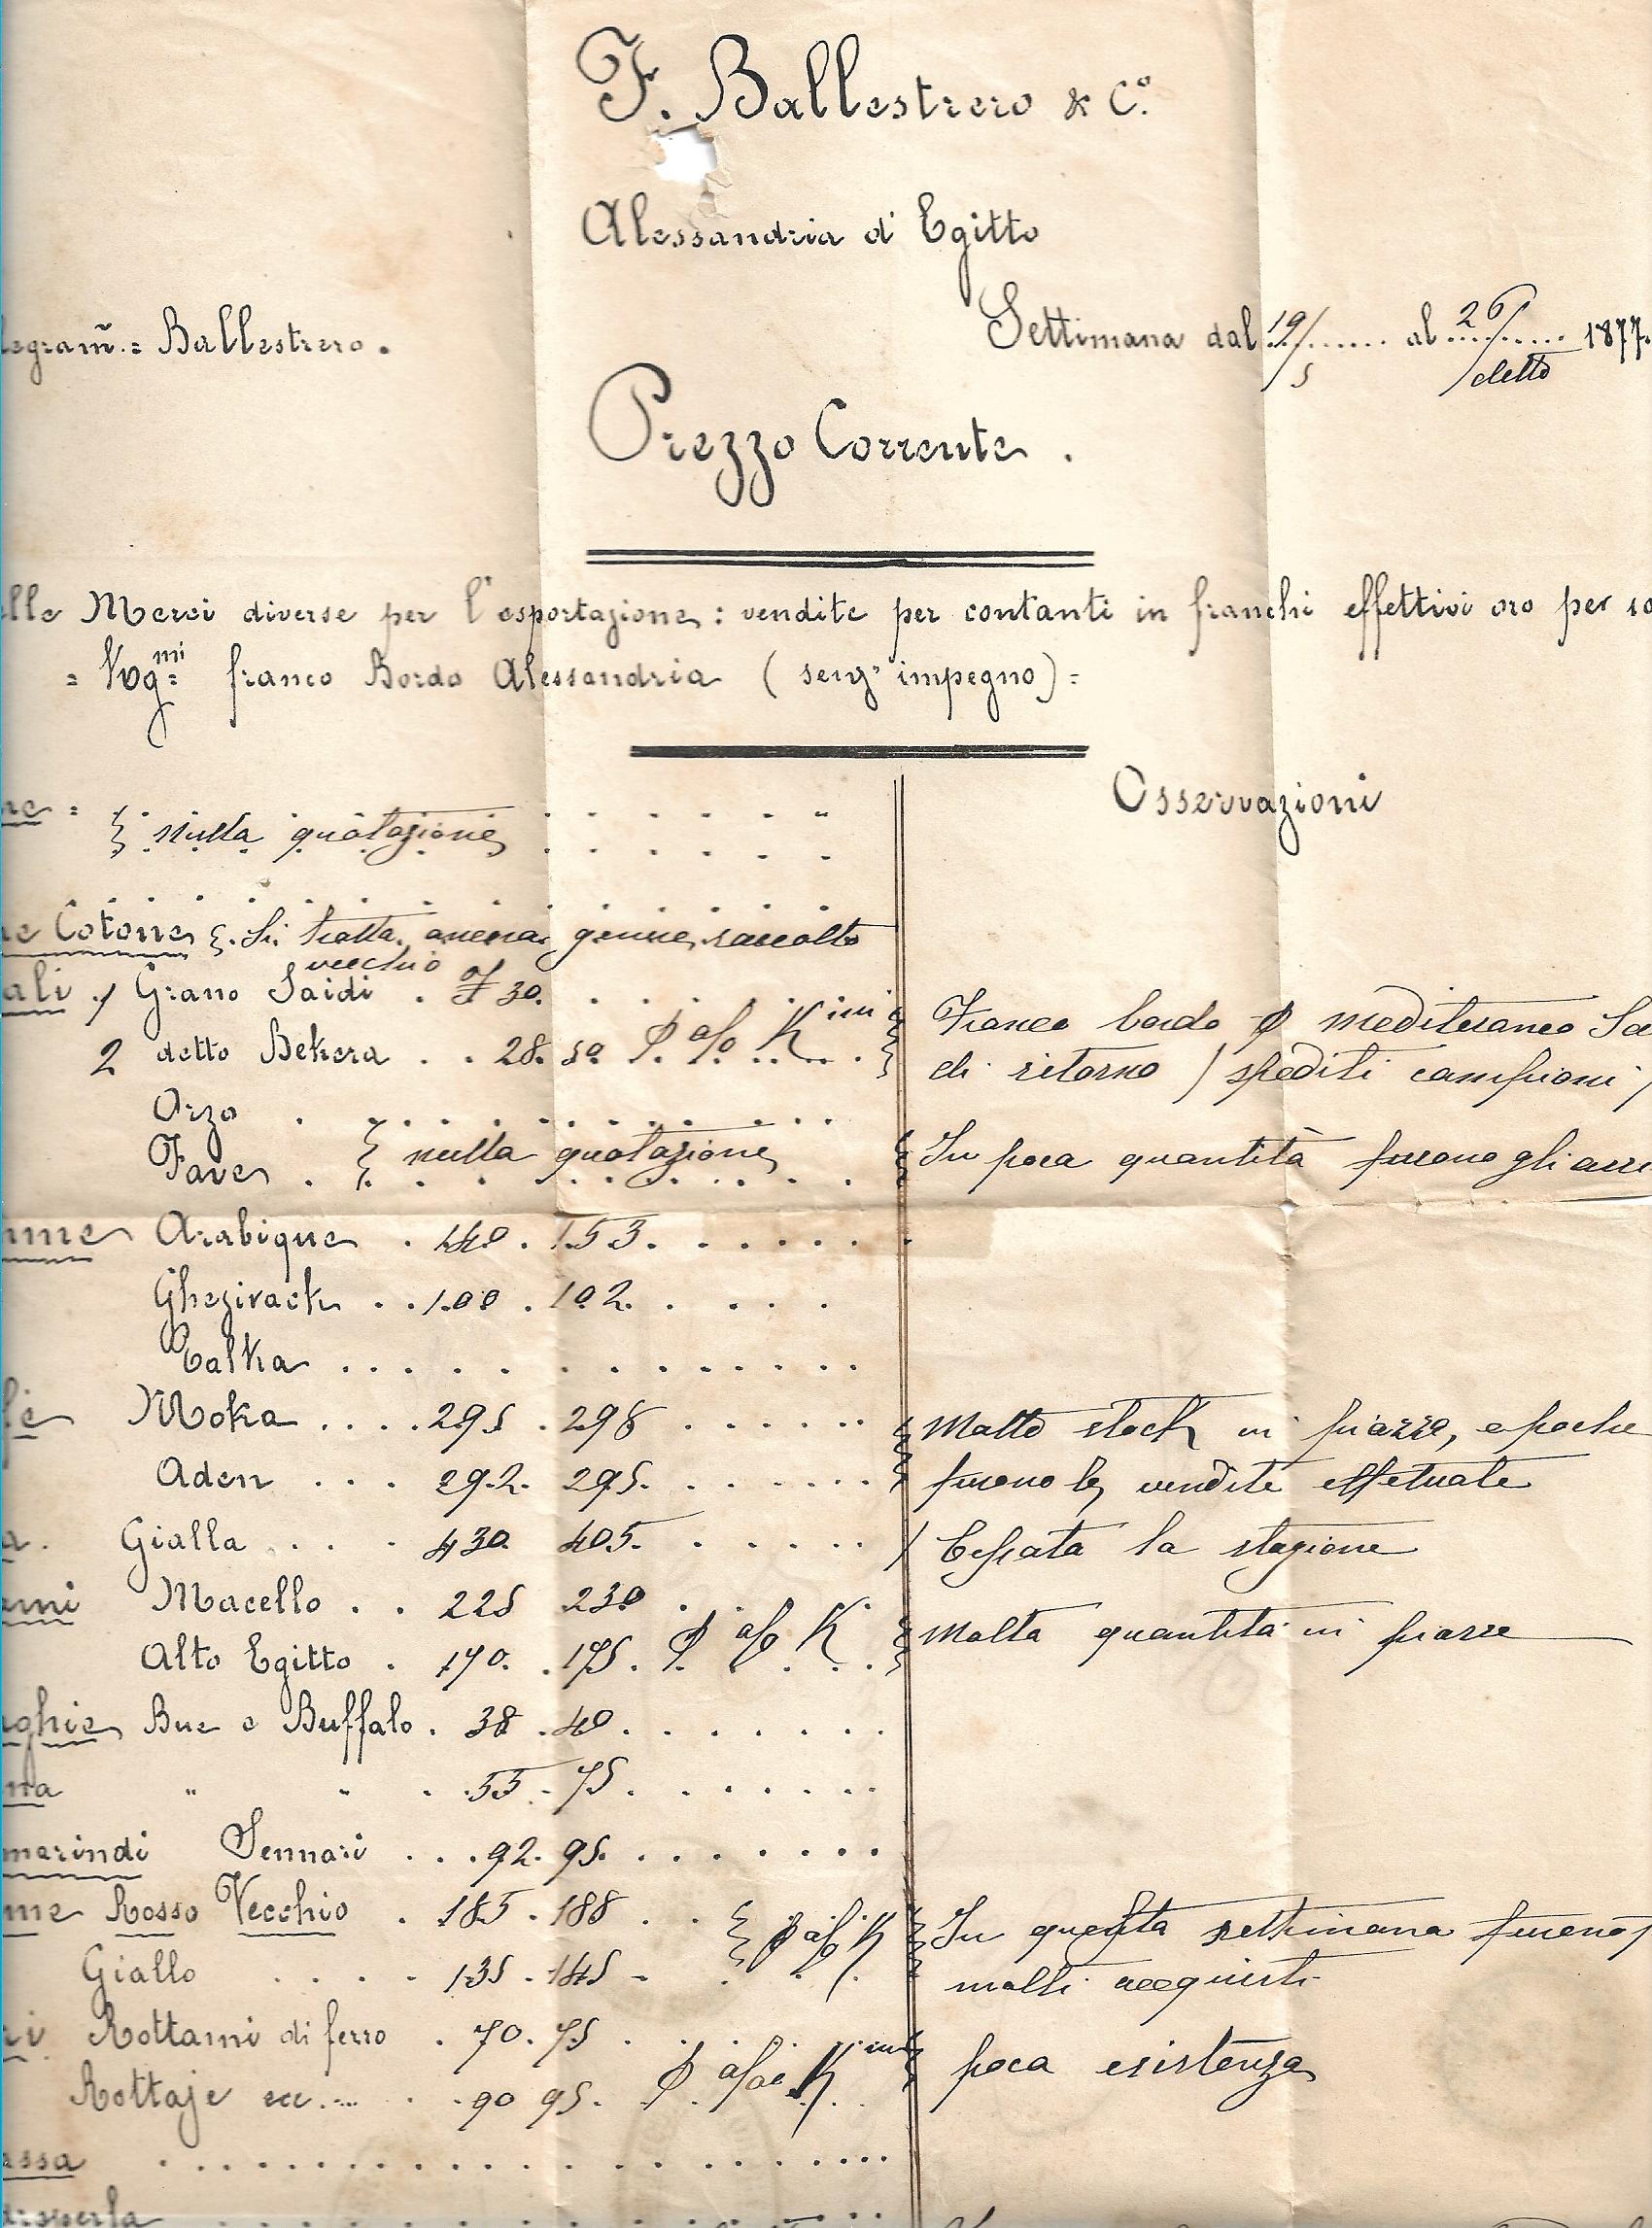 F. Ballestrero & C.º
Alessandria d'Egitto
legram̃.= Ballestrero.
Settimana dal 19/5 ....... al 26/detto ....... 1877.
Prezzo Corrente.
elle Merci diverse per l'esportazione: vendite per contanti in franchi effettivi oro per
= Kog.mi franco Bordo Alessandria (senz' impegno) =
Osservazioni
ne = nulla quotazione
ne Cotone Si tratta genere raccolto
vecchio
ali 1 Grano Saidi . F 30.
2 detto Bekera . . 28. 50 P. o/o K.mi
Franco bordo mediteraneo
di ritorno / spediti campioni /
Orzo
Fave nulla quotazione
In poca quantità furono gli
mme Arabique . 140 . 153.
Ghezirack . . 100 . 102.
Talka
fè Moka .... 295 . 298
Molto stock in piazza, e poche
Aden ... 292. 295.
furono le vendite effetuate
a. Gialla ... 430 405.
Cessata la stagione
ami Macello . . 225 230
Alto Egitto . 170. . 175. P. o/o K
Molta quantità in piazze
nghie Bue e Buffalo . 38 . 40.
na " " . 55 - 75.
marindi Sennari ... 92. 95.
me Rosso Vecchio . 185 . 188 . . P o/o K
In questa settimana furono
Giallo .... 135 . 145
molti acquisti
ri Rottami di ferro . 70. 75
Rottaje ecc. ... 90 95. P. o/o K.mi
poca esistenza
assa
drsperla